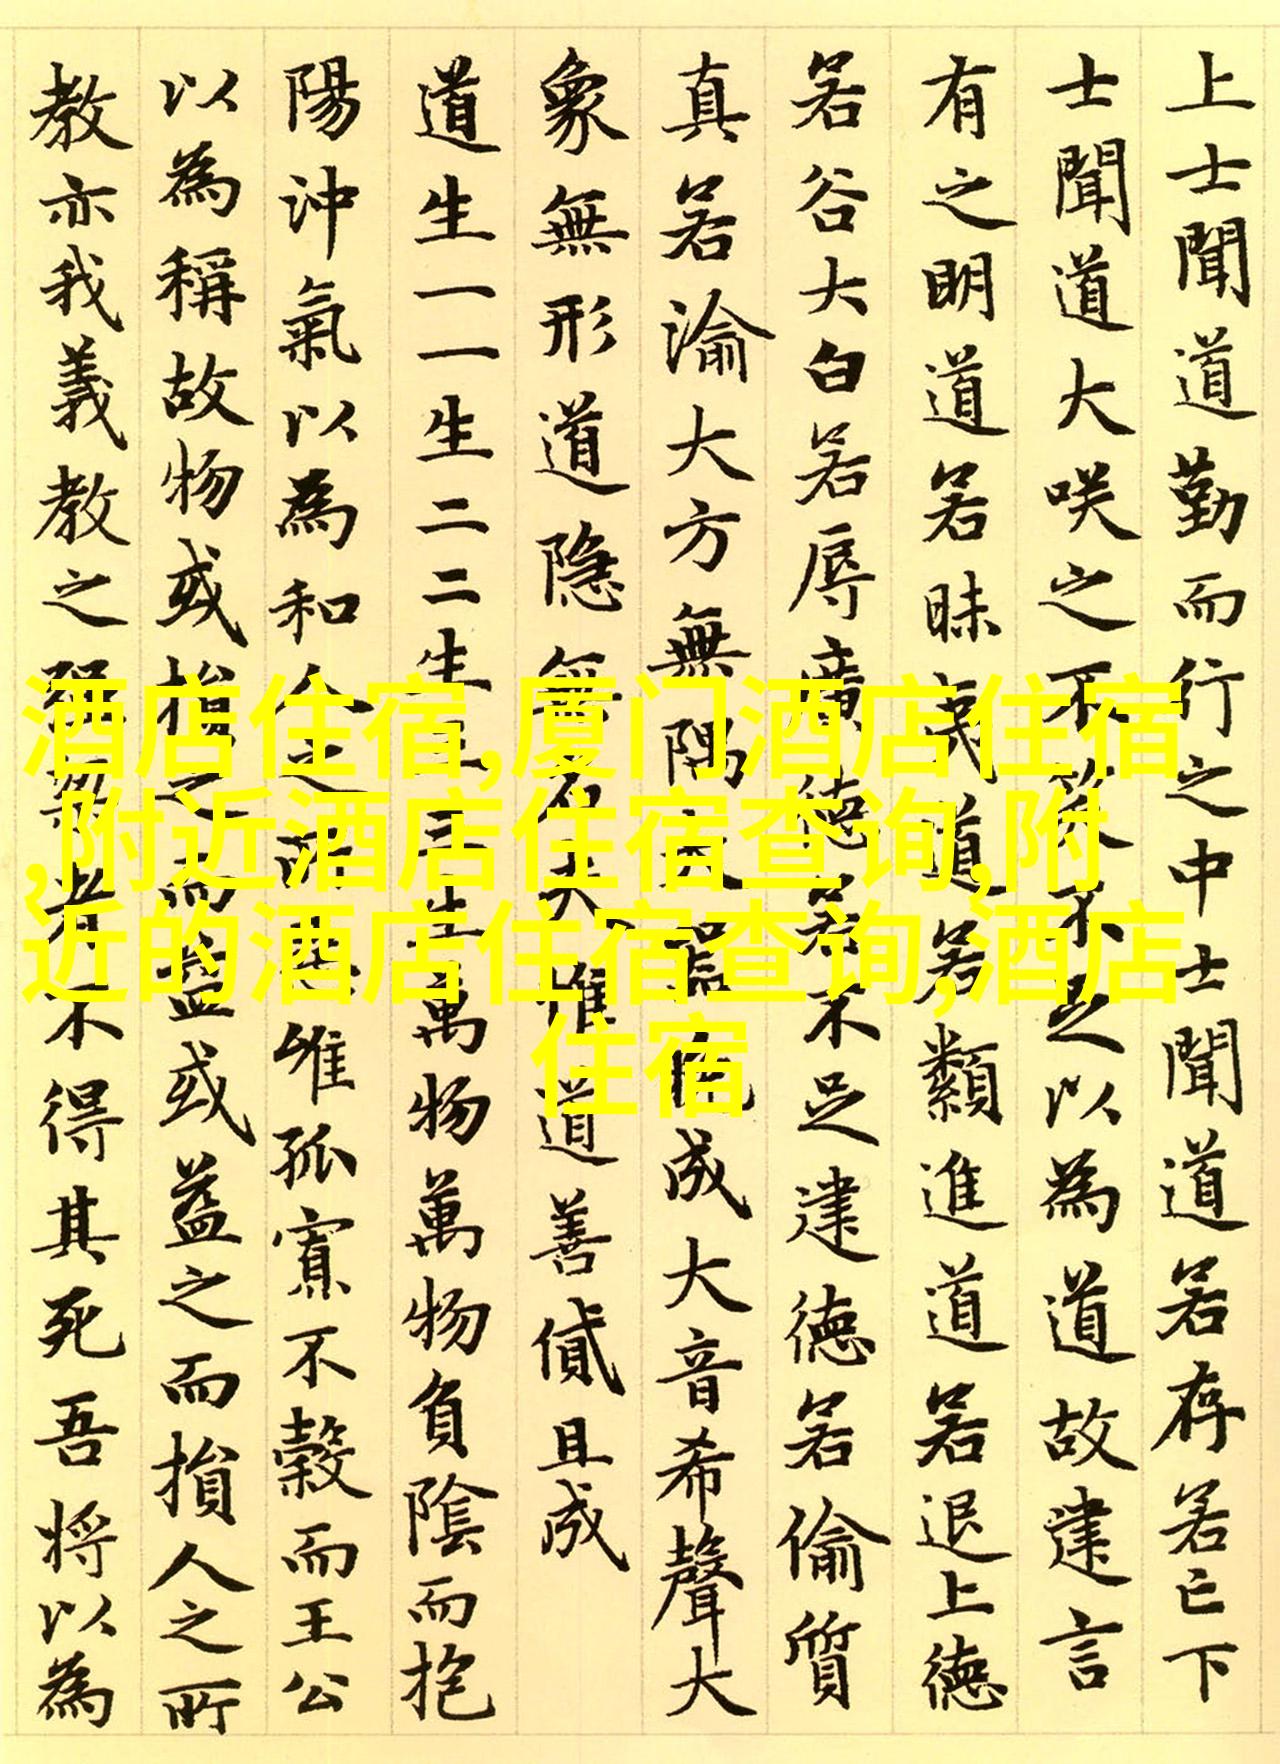 上士聞道勤而行之中士聞道若存若亡下
士聞道大咲之不笑不足以為道故建言
有之明道若昧夷道若類進道若退上德
若谷大白若辱廣德若不足建德若偷質
真若渝大方無隅大器晚成大音希聲大
象無形道隐無名夫惟道善貸且成
道生一一生二二生三三生萬物萬物負陰而抱
陽沖氣以為和人之所惡唯孤寡不穀而王公
以為稱故物或損之而益或益之而損人之所
教亦我義教之強梁者不得其死吾将以為
酒店住宿,厦门酒店住宿
,附近酒店住宿查询,附
近的酒店住宿查询,酒店
住宿